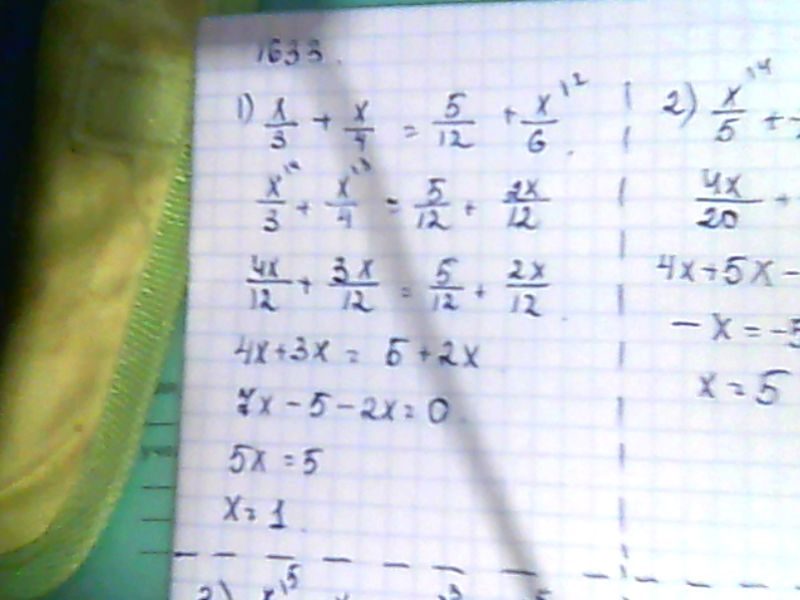 1633.
1) x/3 + x/4 = 5/12 + x/6 ⁽²
x/3 ⁽⁴ + x/4 ⁽³ = 5/12 + 2x/12
4x/12 + 3x/12 = 5/12 + 2x/12
4x+3x = 5+2x
7x-5-2x=0
5x=5
x=1
2) x/5 ⁽⁴ +
4x/20 +
4x+5x-
-x=-5
x=5